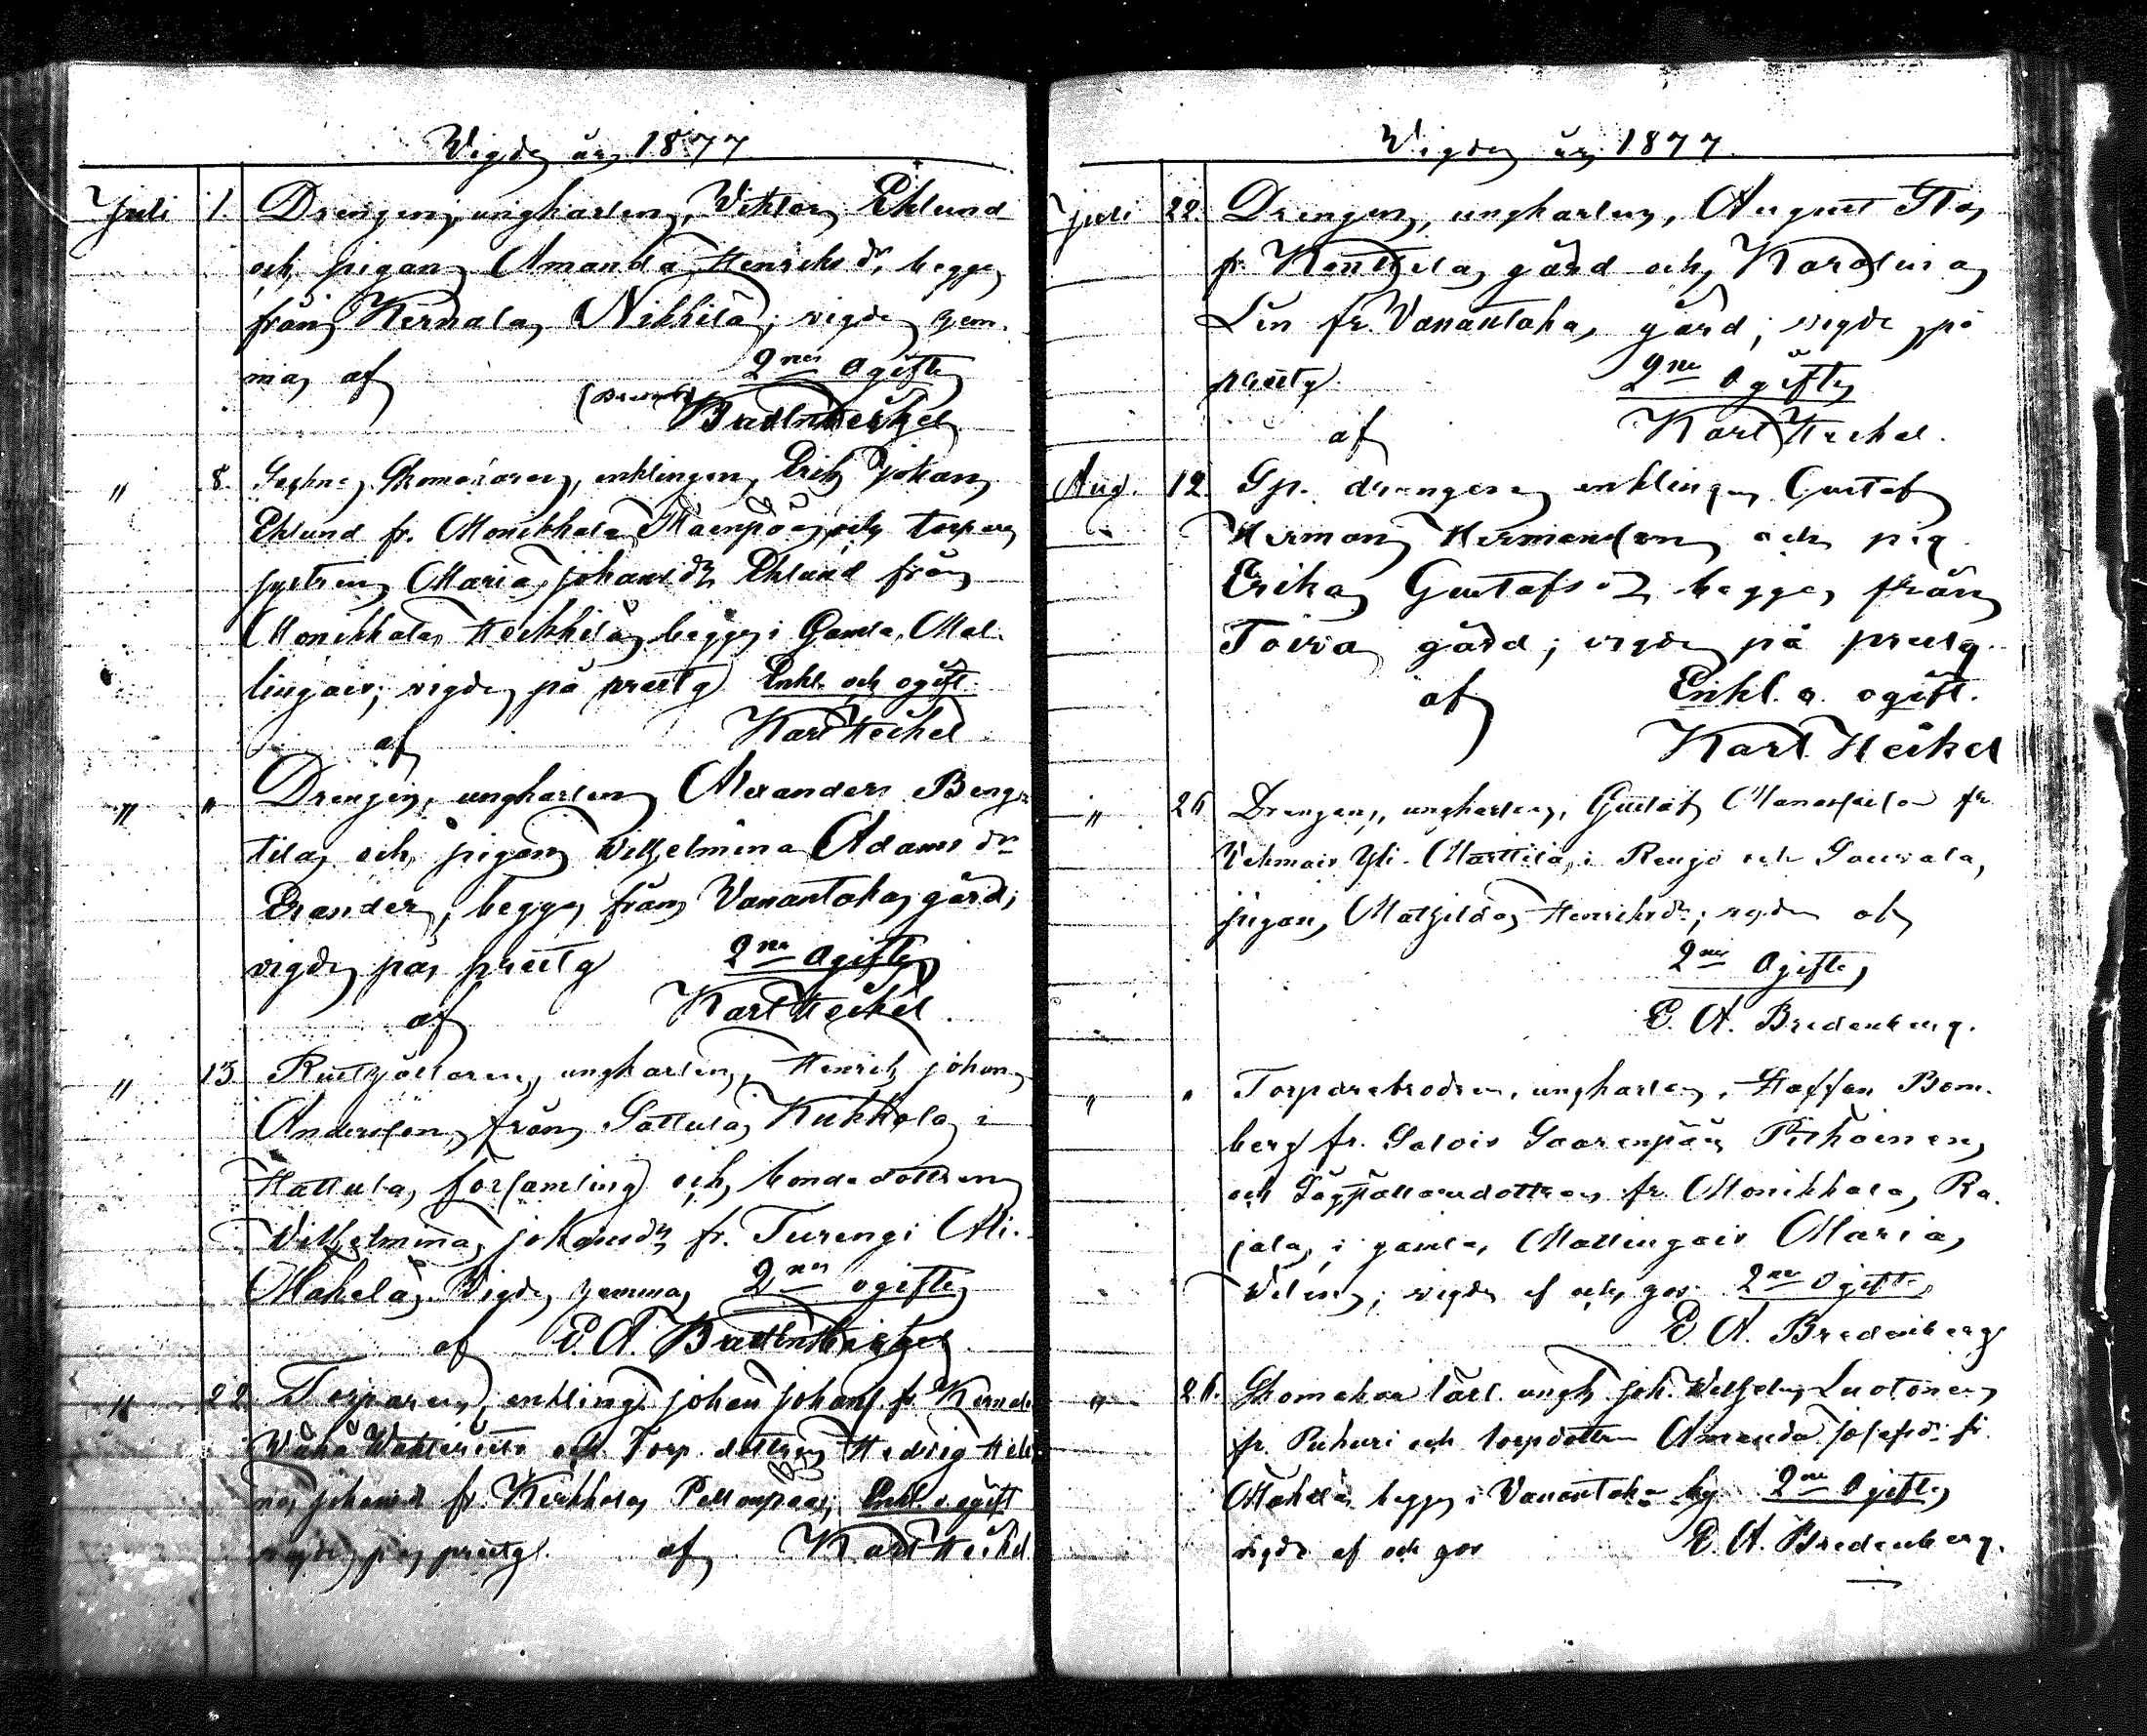 Vigde år 1877
Juli 1. Drengen, ungkarlen, Viktor Eklund
och pigan Amanda Henriksdr, begge
från Kernala Nikkilä; vigde hem-
ma af 2ne Ogifte
(Bredenb) Bredenb Heikel
" 8. Skomakaren, enklingen Erik Johan
Eklund fr. Monikkala Mäenpää och torpare
systern Maria Johansdr Eklund från
Monikkala Heikkilä, begge i Gamla Mal-
lingais; vigde på prestg Enkl. och ogift
af Karl Heikel
" " Drengen, ungkarlen Alexander Beng-
tila och pigan Vilhelmina Adamsdr
Erander, begge från Vanantaka gård;
vigde på prestg 2ne Ogifte
af Karl Heikel.
" 13 Rusthållaren, ungkarlen, Henrik Johan
Andersson från Sattula Kukkola i
Hattula församling och bondedottren
Vilhelmina Johansdr fr. Turengi Ali-
Mäkelä. Vigde hemma 2ne ogifte
af E. A. Bredenb Heikel
" 22. Torparen, enkling Johan Johans. fr. Kernala
Vähä och Torp. dottren Hedvig Hele-
na Johansd fr. Kerkkola Pellonpää, Enkl. o ogift
vigde på prestg. af Karl Heikel
Vigde år 1877.
Juli 22. Drengen, ungkarlen, August
fr. gård och Karolina
Lin fr. Vanantaka gård; vigde på
prestg. 2ne Ogifte
af Karl Heikel.
Aug. 12. Sp. drengen enklingen Gustaf
Herman Hermansson och pig.
Erika Gustafsdr begge från
Toivia gård; vigde på prestg.
af Enkl. o. ogift.
Karl Heikel
" 26 Drengen, ungkarlen, Gustaf fr
Vehmais Yli-Marttila i Rengo och
pigan Mathilda Henriksdr; vigde af
2ne Ogifte
E. A. Bredenberg.
" " Torparebrodren, ungkarlen, Staffan Bom-
berg fr. Salois Saarenpää
och fr. Monikkala Ra-
jala i gamla Mallingais Maria
; vigde af och hos 2ne Ogifte
E. A. Bredenberg
" 26. Skomakare lärl. ungk Joh. Vilhelm Luotonen
fr. Puhuri och torpdottren Amanda Josefsdr fr.
Mäkelä begge i Vanantaka by 2ne Ogifte
vigde af och hos E. A. Bredenberg.